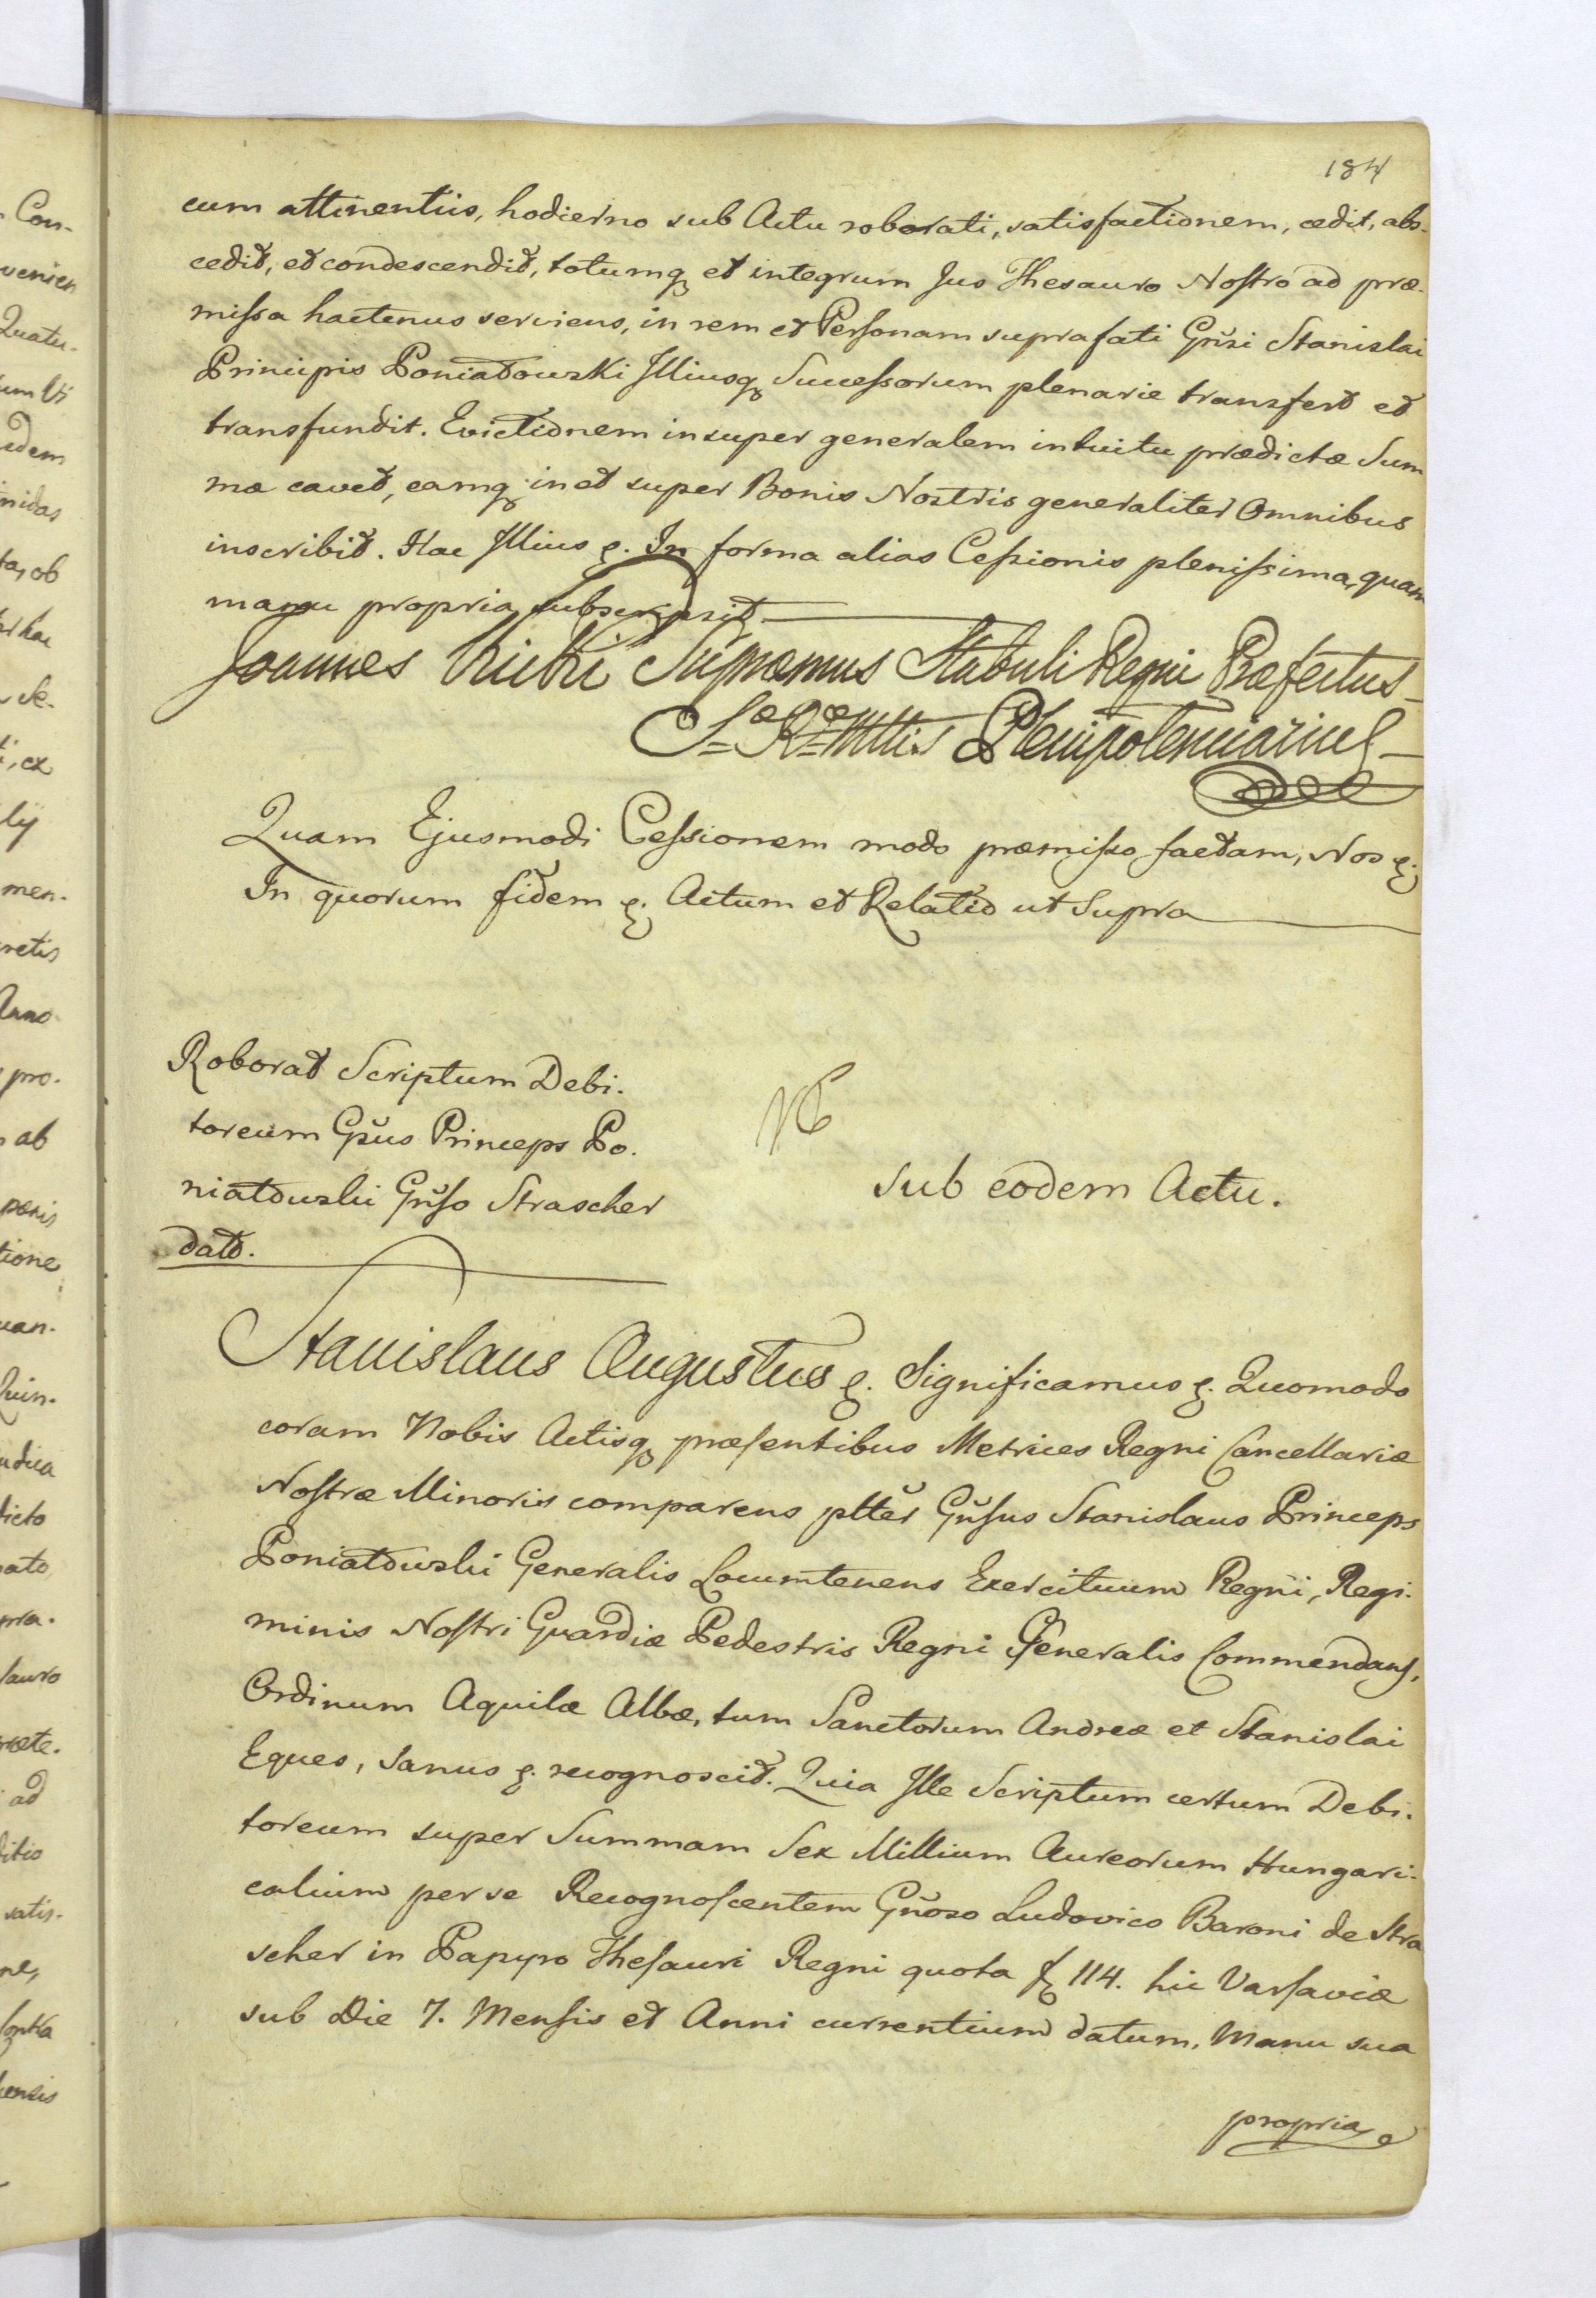 184
cum attinentiis, hodierno sub Actu roborati, satisfactionem, cedit, abs-
cedit, et condescendit, totumq; et integrum Jus Thesauro Nostro ad præ-
missa hactenus serviens, in rem et Personam suprafati Gnsi Stanislai
Principis Poniatowski Illiusq; Successorum plenarie transfert et
transfundit. Evictionem insuper generalem intuitu prædictæ Sum
mæ cavet, eamq; in et super Bonis Nostris generaliter Omnibus
inscribit. Hac Illius &. In forma alias Cessionis plenissima, quam
manu propria subscripsit
Joannes Kicki Supræmus Stabuli Regni Præfectus
S=æ R=æ Mttis Plenipotentiarius
Quam Ejusmodi Cessionem modo præmisso factam, Nos &;
In quorum fidem &; Actum et Relatio ut Supra
Roborat Scriptum Debi-
toreum Gñus Princeps Po-
niatowski Gnso Strascher
dato.
sub eodem Actu.
Stanislaus Augustus &. Significamus &. Quomodo
coram Nobis Actisq; præsentibus Metrices Regni Cancellariæ
Nostræ Minoris comparens pltter Gnsus Stanislaus Princeps
Poniatowski Generalis Locumtenens Exercituum Regni, Regi-
minis Nostri Guardiæ Pedestris Regni Generalis Commendans,
Ordinum Aquilæ Albæ, tum Sanctorum Andreæ et Stanislai
Eques, sanus &. recognoscit. Quia Ille Scriptum certum Debi-
toreum super Summam Sex Millium Aureorum Hungari-
calium per se Recognoscentem Gñoso Ludovico Baroni de Stra
scher in Papyro Thesauri Regni quota f 114. hic Varsaviæ
sub Die 7. Mensis et Anni currentium datum, Manu sua
propria